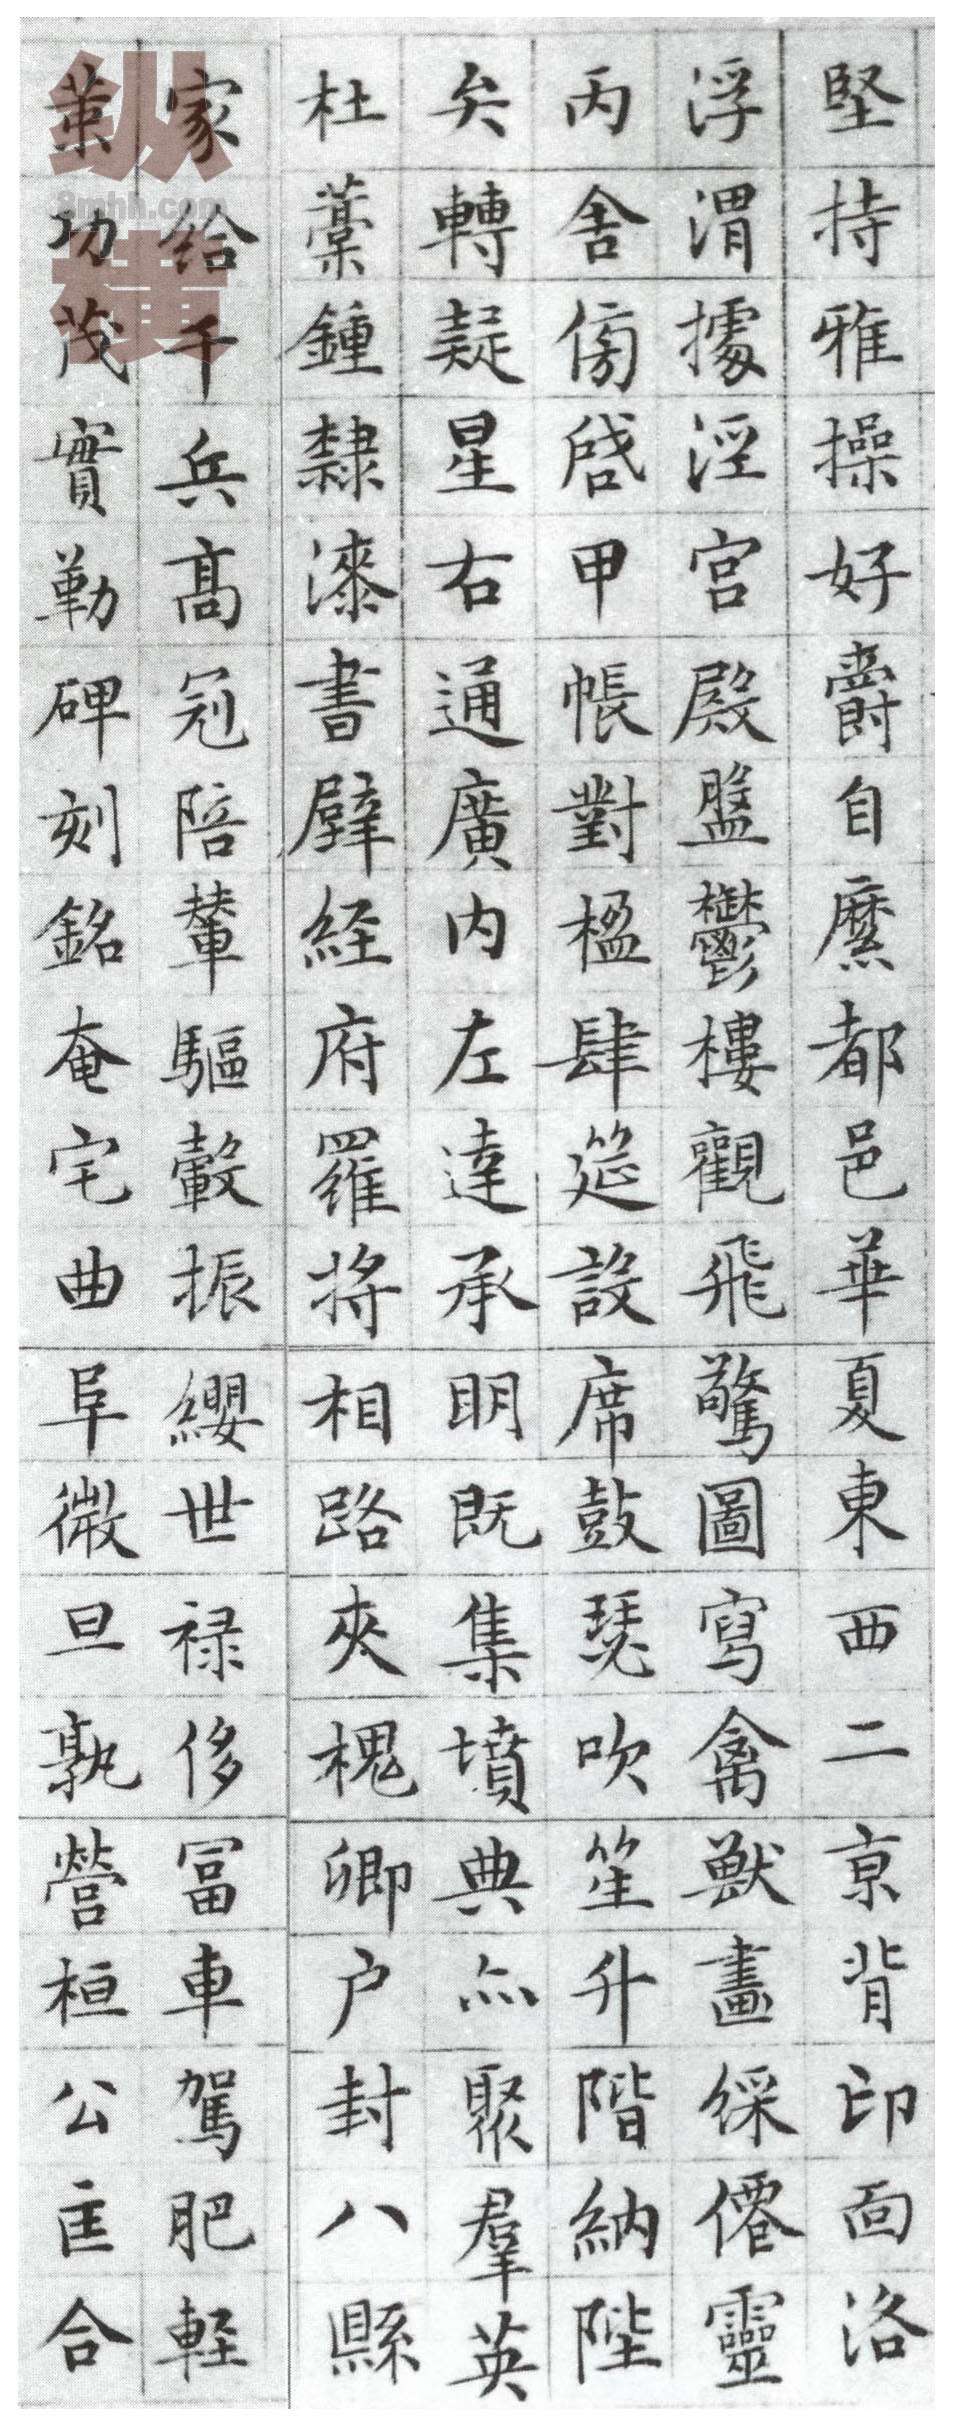 堅持雅操好爵自縻都邑華夏東西二京背邙面洛
浮渭據涇宮殿盤鬱樓觀飛驚圖寫禽獸畫綵僊靈
丙舍傍啓甲帳對楹肆筵設席鼓瑟吹笙升階納陛
矣轉疑星右通廣内左達承明既集墳典亦聚羣英
杜藁鍾隸漆書壁経府羅将相路夾槐卿户封八縣
家給千兵髙冠陪輦驅轂振纓世禄侈冨車駕肥軽
策功茂實勒碑刻銘奄宅曲阜微旦孰營桓公匡合
纵横
3mhh.com